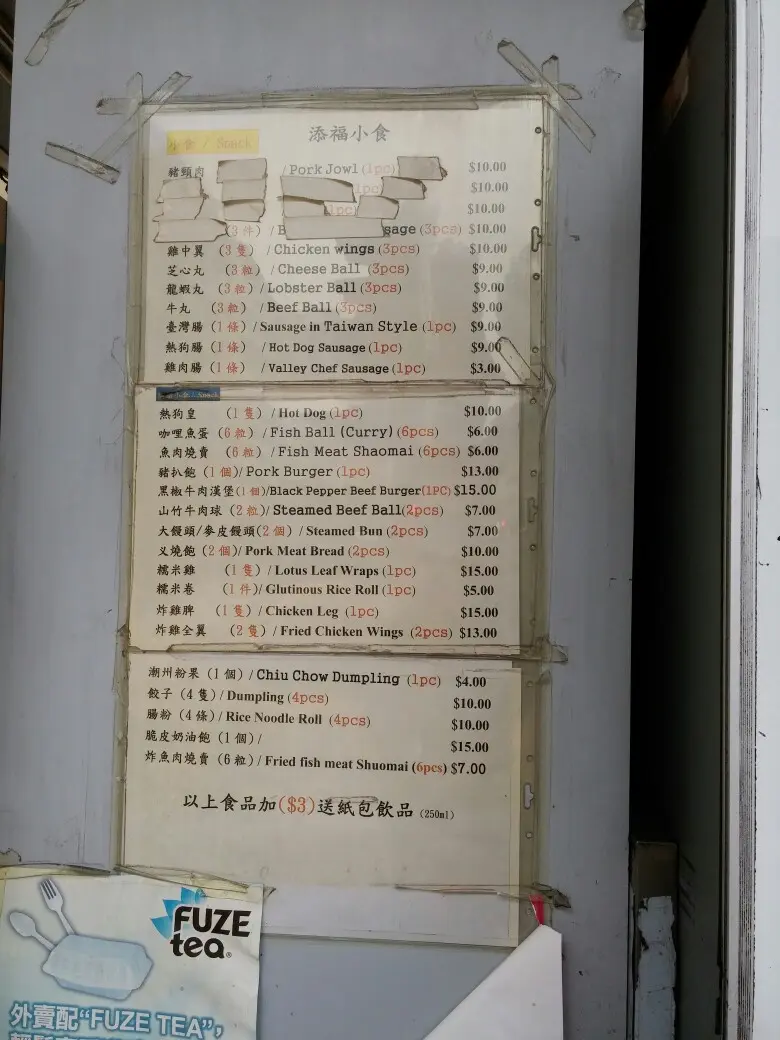 添福小食
小食 / Snack
豬頸肉 /Pork Jowl (1pc) $10.00
1pc) $10.00
1pc) $10.00
(3 件) / B sage (3pcs) $10.00
雞中翼 (3 隻) / Chicken wings (3pcs) $10.00
芝心丸 (3 粒) / Cheese Ball (3pcs) $9.00
龍蝦丸 (3 粒) / Lobster Ball (3pcs) $9.00
牛丸 (3 粒) / Beef Ball (3pcs) $9.00
臺灣腸 (1 條) / Sausage in Taiwan Style (1pc) $9.00
熱狗腸 (1 條) / Hot Dog Sausage (1pc) $9.00
雞肉腸 (1 條) / Valley Chef Sausage (1pc) $3.00
熱狗皇 (1 隻) / Hot Dog (1pc) $10.00
咖哩魚蛋 (6 粒) / Fish Ball (Curry) (6pcs) $6.00
魚肉燒賣 (6 粒) / Fish Meat Shaomai (6pcs) $6.00
豬扒飽 (1 個)/ Pork Burger (1pc) $13.00
黑椒牛肉漢堡(1 個)/Black Pepper Beef Burger(1PC) $15.00
山竹牛肉球 (2 粒) / Steamed Beef Ball(2pcs) $7.00
大饅頭/麥皮饅頭(2 個) / Steamed Bun (2pcs) $7.00
义燒飽 (2 個)/ Pork Meat Bread (2pcs) $10.00
糯米雞 (1 隻) / Lotus Leaf Wraps (1pc) $15.00
糯米卷 (1 件)/ Glutinous Rice Roll (1pc) $5.00
炸雞脾 (1 隻) / Chicken Leg (1pc) $15.00
炸雞全翼 (2 隻) / Fried Chicken Wings (2pcs) $13.00
潮州粉果 (1 個) / Chiu Chow Dumpling (1pc) $4.00
餃子 (4 隻) / Dumpling (4pcs) $10.00
腸粉 (4 條) / Rice Noodle Roll (4pcs) $10.00
脆皮奶油飽 (1 個)/ $15.00
炸魚肉燒賣 (6 粒) / Fried fish meat Shuomai (6pcs) $7.00
以上食品加($3)送紙包飲品 (250ml)
FUZE
tea®
外賣配“FUZE TEA”,